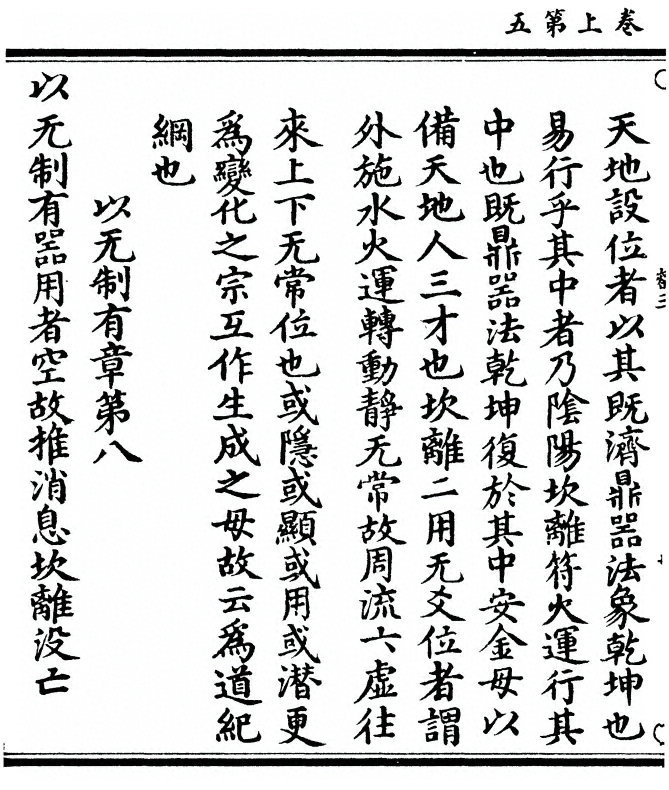 卷上第五
天地設位者以其既濟鼎器法象乾坤也
易行乎其中者乃陰陽坎離符火運行其
中也既鼎器法乾坤復於其中安金母以
備天地人三才也坎離二用无爻位者謂
外施水火運轉動靜无常故周流六虛往
來上下无常位也或隱或顯或用或潜更
為變化之宗互作生成之母故云為道紀
綱也
以无制有章第八
以无制有器用者空故推消息坎離沒亡